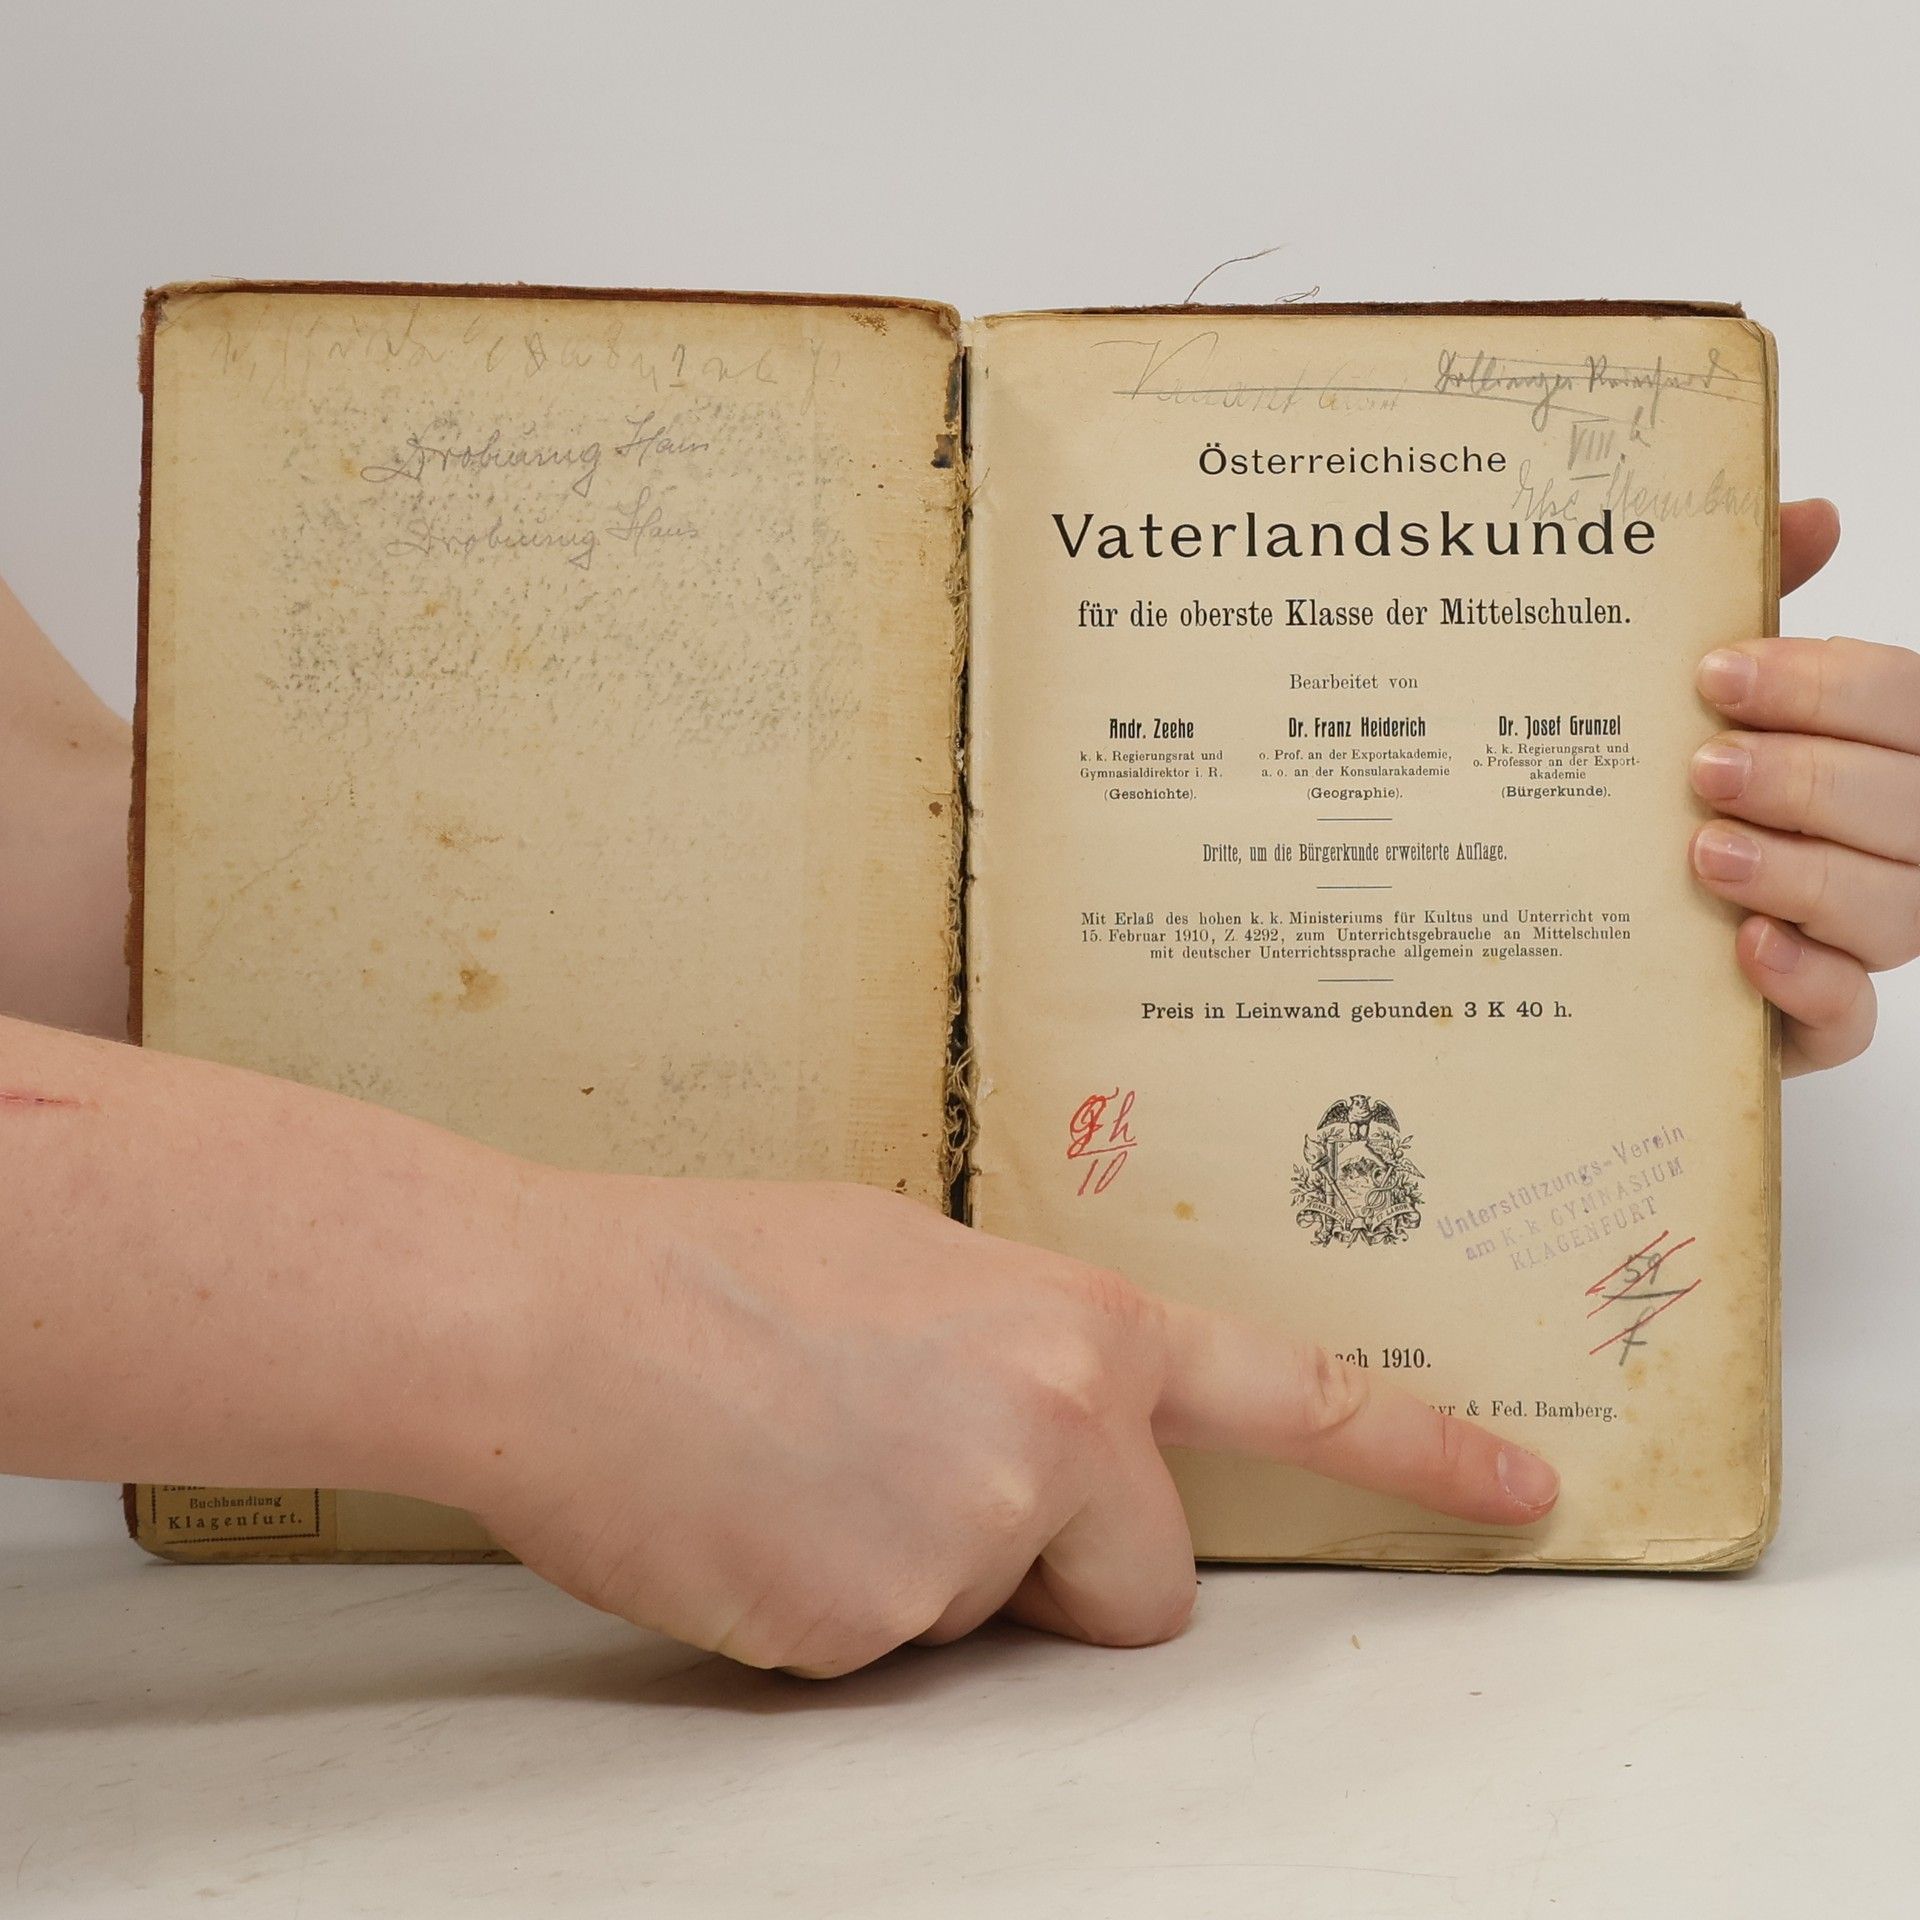 Hans
Hans
Buchhandlung
Klagenfurt.
VIII. b
Österreichische
Vaterlandskunde
für die oberste Klasse der Mittelschulen.
Bearbeitet von
Andr. Zeehe
k. k. Regierungsrat und
Gymnasialdirektor i. R.
(Geschichte).
Dr. Franz Heiderich
o. Prof. an der Exportakademie,
a. o. an der Konsularakademie
(Geographie).
Dr. Josef Grunzel
k. k. Regierungsrat und
o. Professor an der Export-
akademie
(Bürgerkunde).
Dritte, um die Bürgerkunde erweiterte Auflage.
Mit Erlaß des hohen k. k. Ministeriums für Kultus und Unterricht vom
15. Februar 1910, Z. 4292, zum Unterrichtsgebrauche an Mittelschulen
mit deutscher Unterrichtssprache allgemein zugelassen.
Preis in Leinwand gebunden 3 K 40 h.
10
CONSTANTIA ET LABOR
Unterstützungs-Verein
am k. k. GYMNASIUM
KLAGENFURT
59
f
ach 1910.
ayr & Fed. Bamberg.